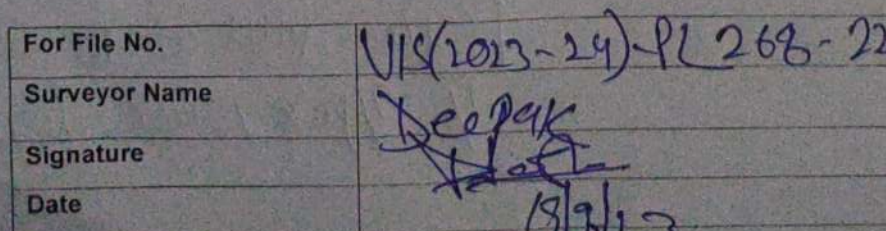 For File No. VIS(2023-24)-PL268-22
Surveyor Name Deepak
Signature
Date